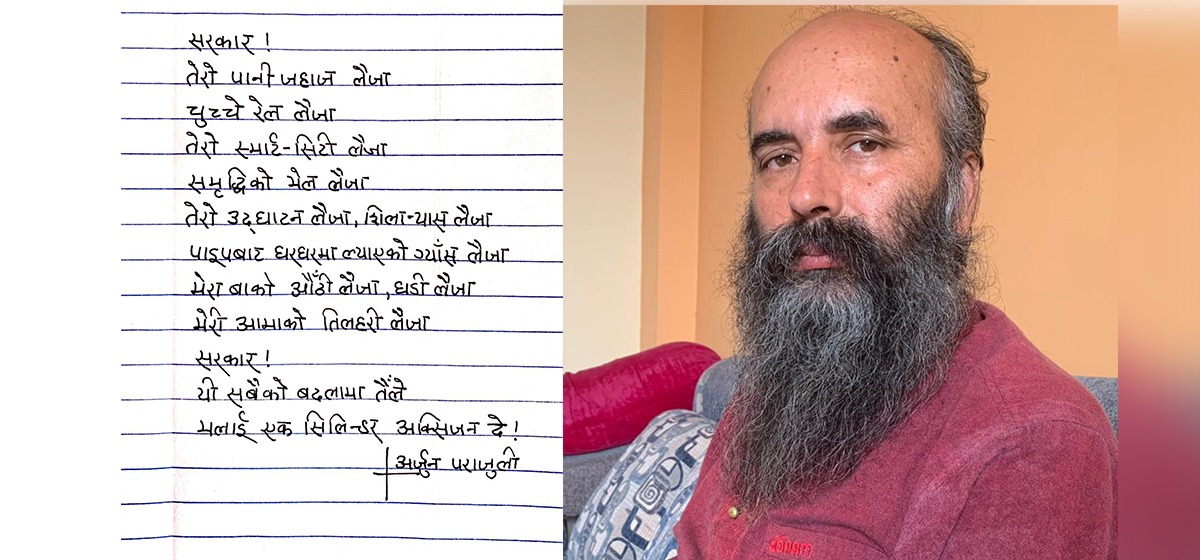 सरकार !
तेरो पानी जहाज लैजा
चुच्चे रेल लैजा
तेरो स्मार्ट-सिटी लैजा
समृद्धिको मेल लैजा
तेरो उद्घाटन लैजा, शिलान्यास लैजा
पाइपबाट घरघरमा ल्याएको ग्याँस लैजा
मेरा बाको औंठी लैजा, घडी लैजा
मेरी आमाको तिलहरी लैजा
सरकार !
यी सबैको बदलामा तैंले
मलाई एक सिलिन्डर अक्सिजन दे !
अर्जुन पराजुली